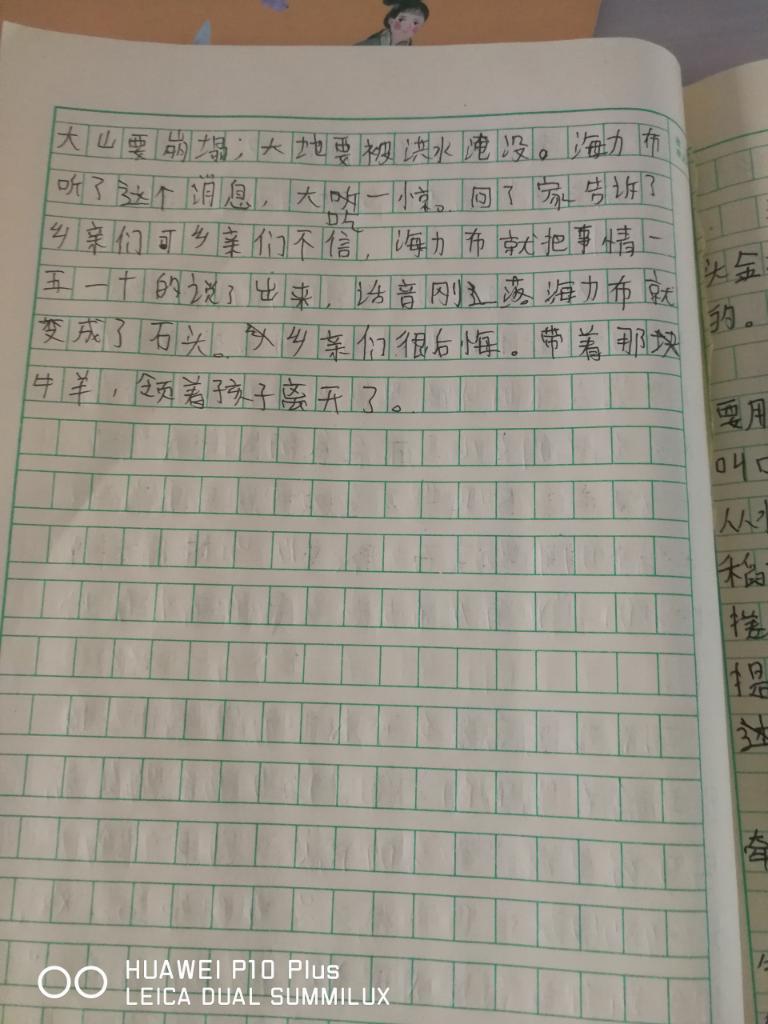 大山要崩塌；大地要被洪水淹没。海力布
听了这个消息，大吃一惊。回了家告诉了
乡亲们可乡亲们不信，海力布就把事情一
五一十的说了出来，话音刚落海力布就
变成了石头。乡亲们很后悔。带着那块
牛羊，领着孩子离开了。
头金
的。
要用
叫口
从
稻
搓
提
这
牵
HUAWEI P10 Plus
LEICA DUAL SUMMILUX